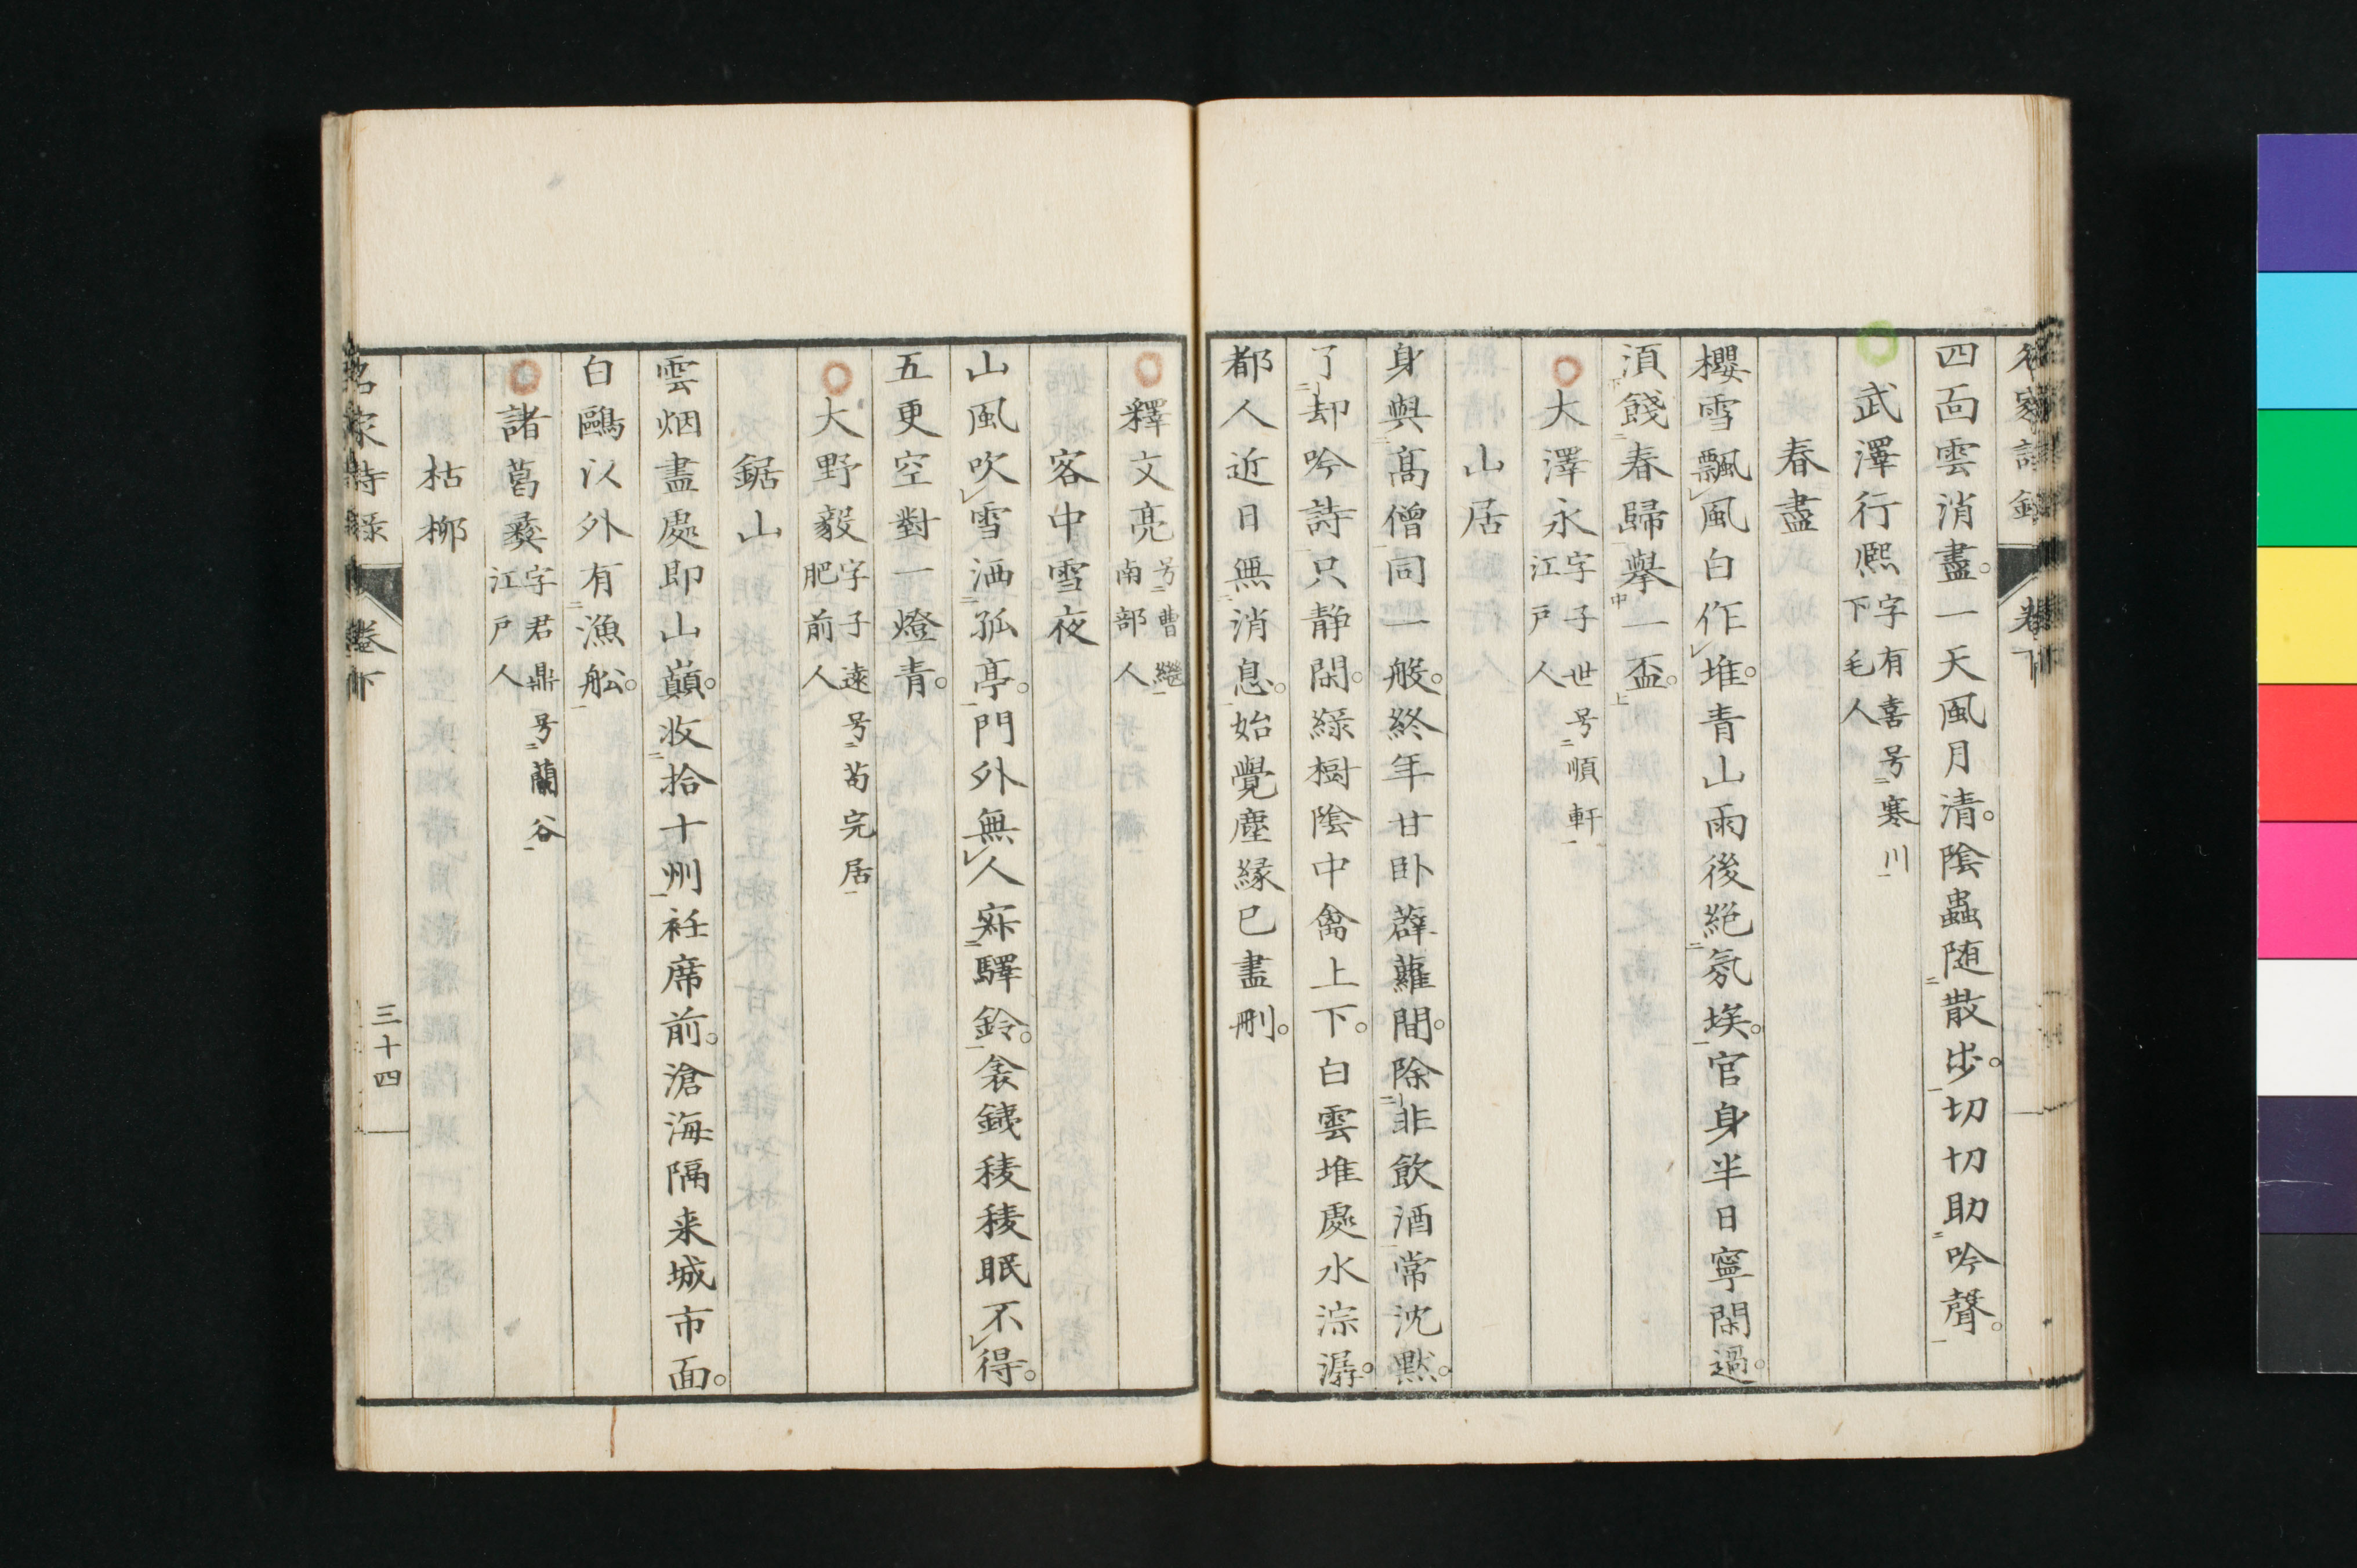 名家詩録 卷下
四面雲消盡。一天風月清。陰蟲随散步。切切助吟聲。
武澤行熈 字有喜号寒川 下毛人
春盡
櫻雪飄風白作堆。青山雨後絶氛埃。官身半日寧閑過。
湏餞春歸擧一盃。
大澤永 字子世号順軒 江戸人
山居
身與髙僧同一般。終年甘卧薜蘿間。除非飲酒常沈黙。
了却吟詩只静閑。緑樹陰中禽上下。白雲堆處水淙潺。
都人近日無消息。始覺塵縁已盡刪。
釋文亮 号曹繼 南部人
客中雪夜
山風吹雪洒孤亭。門外無人寂驛鈴。衾銕稜稜眠不得。
五更空對一燈青。
大野毅 字子遠号苟完居 肥前人
鋸山
雲烟盡處即山巔。收拾十州衽席前。滄海隔来城市面。
白鷗以外有漁舩。
諸葛彜 字君鼎号蘭谷 江戸人
枯柳
名家詩録 卷下 三十四